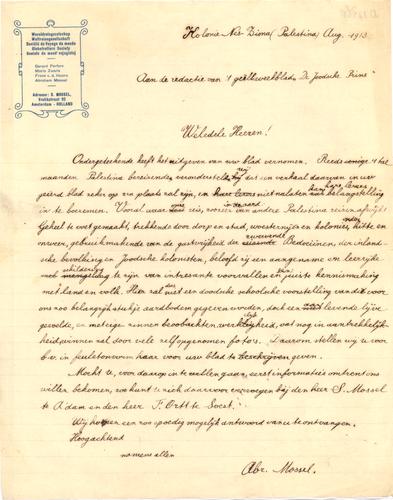 Wereldreisgezelschap
Weltreisegesellschaft
Société du Voyage du monde
Globetrotters Society
Gerard Perfors
Abraham Mossel
Adresse: S. MOSSEL,
Amsterdam - HOLLAND
Kolonie Nes-Ziona (Palestina) Aug. 1913
Aan de redactie van 't geïll. weekblad „De Joodsche Prins"
Weledele Heeren!
Ondergeteekende heeft het uitgeven van uw blad vernomen. Reeds eenige
maanden Palestina bereizende veronderstelt hij dat een verhaal daarvan in uw
geëerd blad zeker op z'n plaats zal zijn, en niet nalaten belangstelling
in te boezemen. Vooral waar onze reis, voor zoover van andere Palestina reizen afwijkt.
Geheel te voet gemaakt, trekkende door dorp en stad, woestenijen en kolonies, hitte en
onweer, gebruik makende van de gastvrijheid der zwervende Bedoeïenen, der inland-
sche bevolking en Joodsche kolonisten, beloofd zij een aangename en leerrijke
schildering te zijn van interessante voorvallen en juiste kennismaking
met land en volk. Hier zal niet een doode schoolsche voorstelling van dit voor
ons zoo belangrijk stukje aardbodem gegeven worden, doch een levende
gevoelde, en met eige zinnen beobachten werkelijkheid, wat nog in aantrekkelijk-
heid winnen zal door vele zelfopgenomen foto's. Daarom stellen wij u voor
b.v. in feuilletonvorm haar voor uw blad te geven.
Mocht u, voor daarop in te willen gaan, eerst informaties omtrent ons
willen bekomen, zoo kunt u zich daarvoor vervoegen bij den heer S. Mossel
te A'dam en den heer F. Ortt te Soest.
Wij hopen een zoo spoedig mogelijk antwoord van u te ontvangen.
Hoogachtend
namens allen
Abr. Mossel.